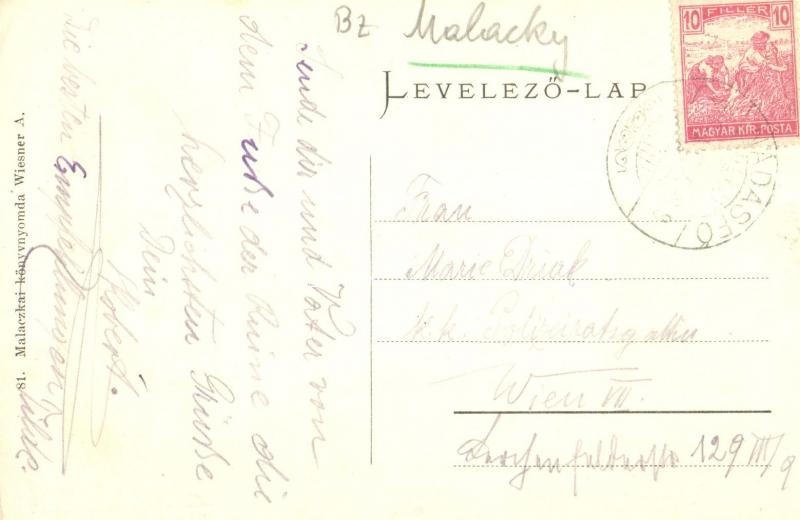 Bz Malacky
LEVELEZŐ-LAP
10 FILLÉR 10
MAGYAR KIR. POSTA
VADASFŐ
Sende dir und Vater von
dem Fuße der Ruine die
herzlichsten Grüße
Dein
Robert.
Die besten Empfehlungen
81. Malaczkai könyvnyomda Wiesner A.
Frau
Marie Driak
k.k. Polizeiratsgattin
Wien VII.
Lerchenfelderstr 129 III/9